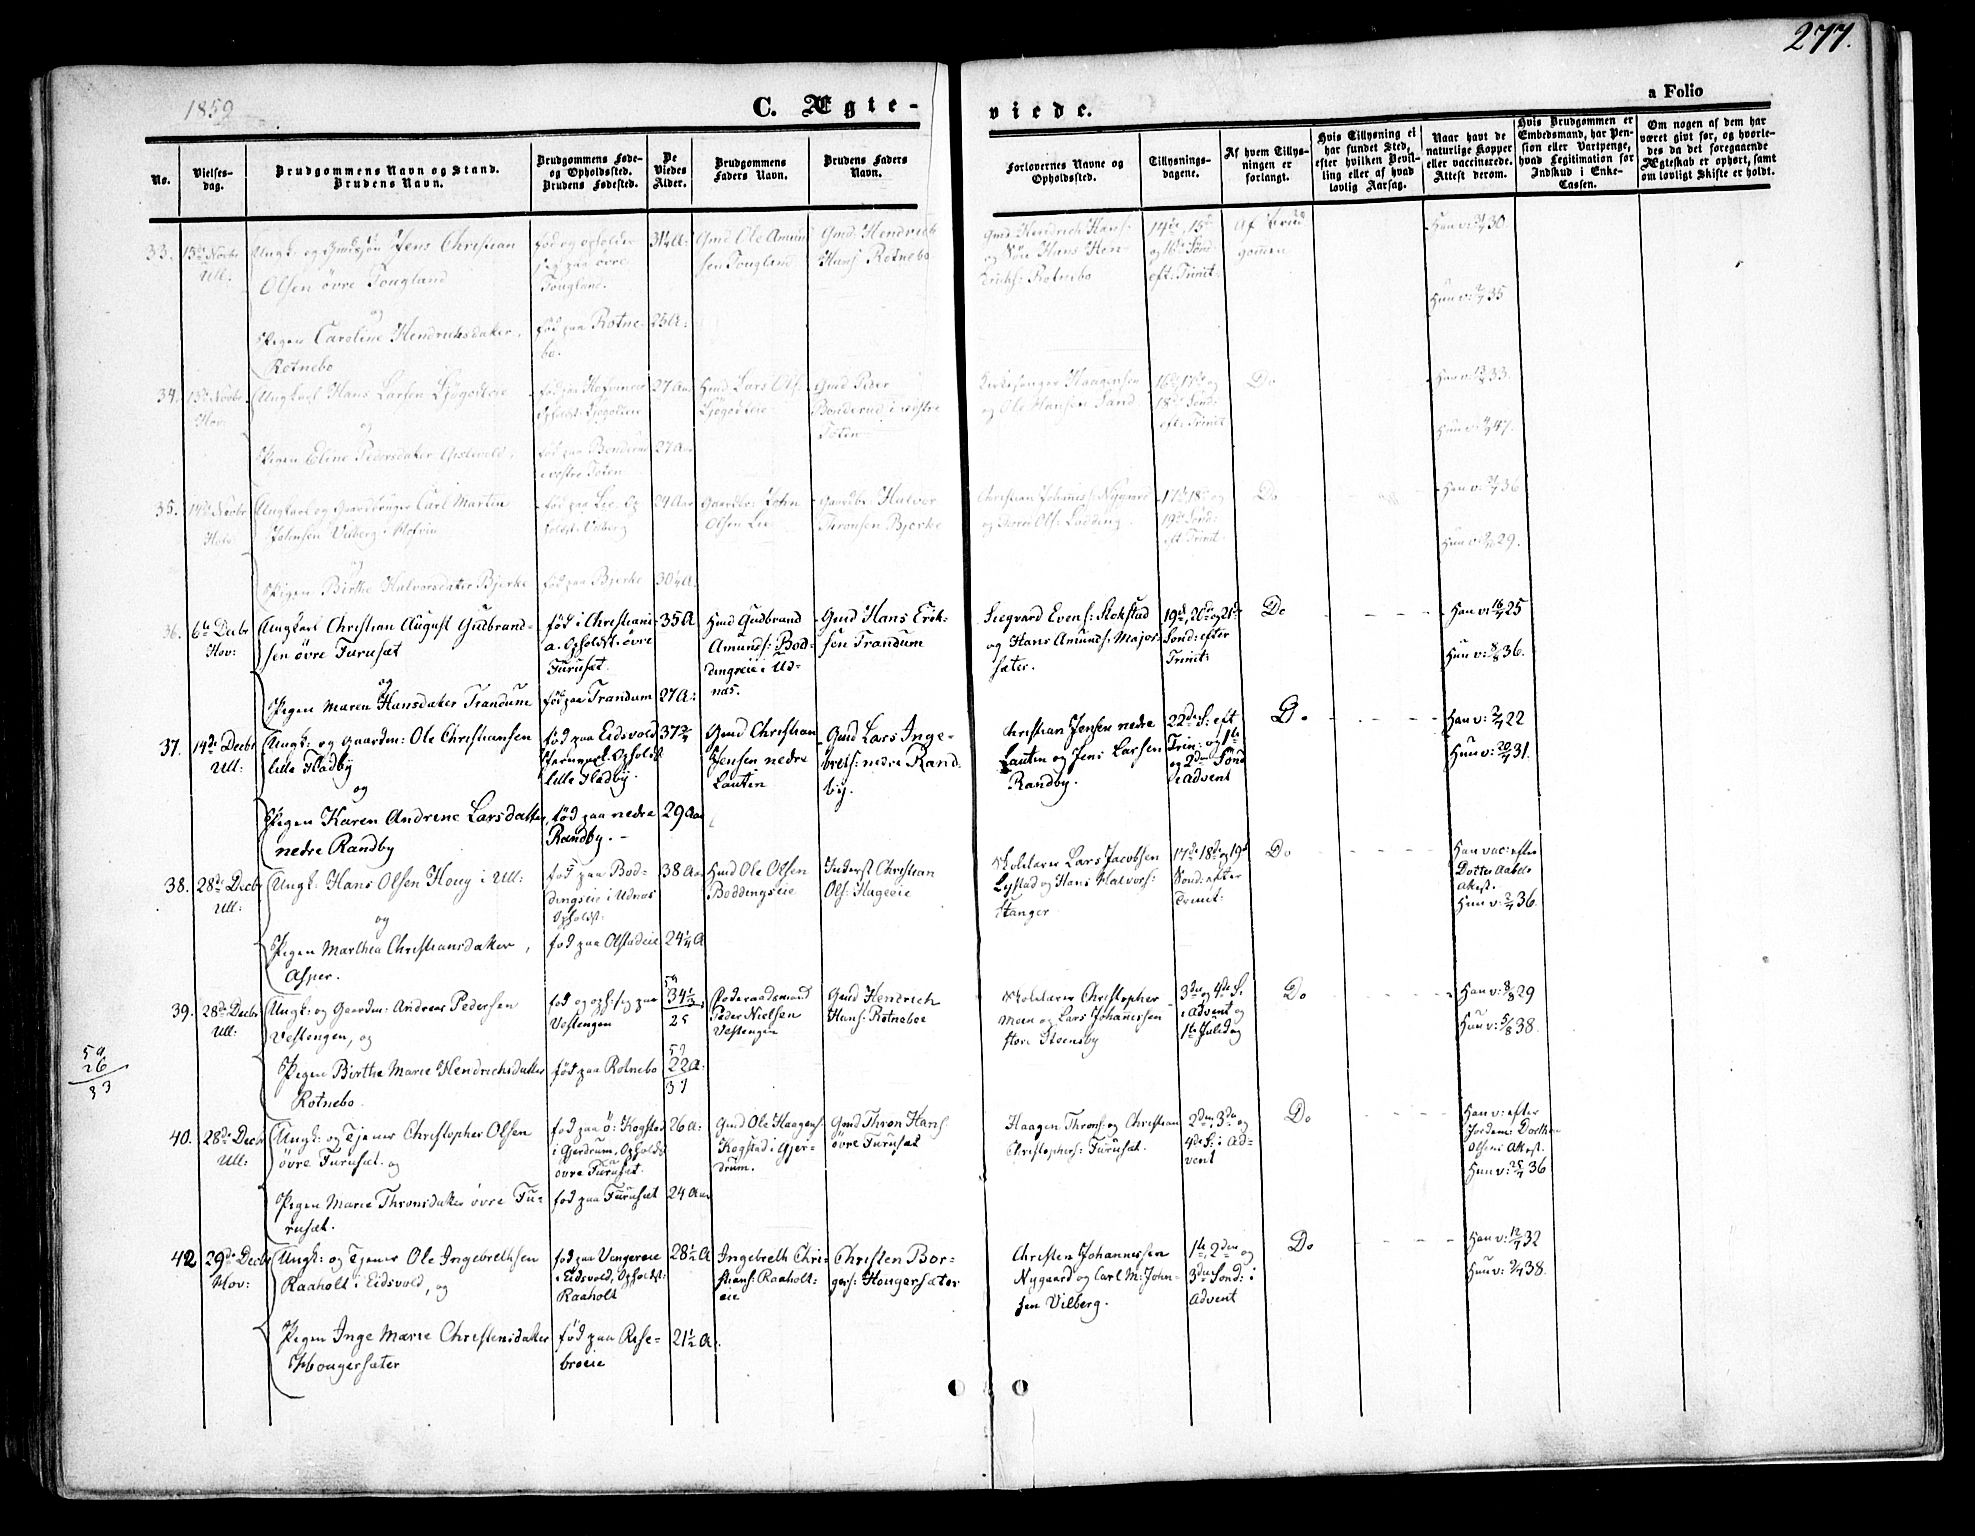 277.
1859
C. Ægte-
viede.
a Folio
No.
Vielses-
dag.
Brudgommens Navn og Stand.
Brudens Navn.
Brudgommens Føde-
og Opholdssted.
Brudens Fødested.
De
Viedes
Alder.
Brudgommens
Faders Navn.
Brudens Faders
Navn.
Forlovernes Navne og
Opholdssted.
Tillysnings-
dagene.
Af hvem Tillys-
ningen er
forlangt.
Hvis Tillysning ei
har fundet Sted,
efter hvilken Bevil-
ling eller af hvad
lovlig Aarsag.
Naar havt de
naturlige Kopper
eller vaccinerede.
Attest derom.
Hvis Brudgommen er
Embedsmand, har Pen-
sion eller Vartpenge,
hvad Legitimation for
Indskud i Enke-
Cassen.
Om nogen af dem har
været givt før, og hvorle-
des da det foregaaende
Ægteskab er ophørt, samt
om lovligt Skifte er holdt.
33.
Ull:
Ungk: og Jens Christian
Olsen øvre Tougland
og
Pigen Caroline Hendrichsdatter
Rotnebo
fød og opholder
sig paa øvre
Tougland.
fød paa Rotne-
bo.
31¼ A:
25 A:
Gmd Ole Amund
sen Tougland
Gmd Hendrich
Hans: Rotnebo
Gmd Hendrich Hans:
og Søn Hans Hen-
drichs: Rotnebo
14de, 15de
og 16de Sønd:
eft: Trinit:
Af Brud
gommen
Han v: 30
Hun v: 35
34.
Hov:
Ungkarl Hans Larsen Ljøgodteie
og
Pigen Eline Pedersdatter
Opholdst: Ljøgodteie
fød paa Bonderud
i vestre Toten
27 Aar
27 Aar
Hmd Lars Ols:
Ljøgodteie
Gmd Peder
Bonderud i vestre
Toten
Kirkesanger Haagensen
og Ole Hansen Sand
16de, 17de og
18de Sønd:
eft: Trinit
Do
Han v: 33.
Hun v: 47.
35.
Hov:
Ungkarl og Gaardbruger Carl Martin
Johnsen Vilberg i
og
Pigen Birthe Halvorsdatter Bjerke
fød paa Lie, Op
holdst: Vilberg
fød paa Bjerke
30¼ A:
Gaardbr: John
Olsen Lie
Gaardbr: Halvor
Thronsen Bjerke
Christian Johannes: Nygaard
17de, 18de og
19de Sønd:
eft Trinit:
Do
Han v: 36
Hun v: 29.
36.
6te Decbr
Hov:
Ungkarl Christian August Gudbrand-
sen øvre Furuset
og
Pigen Maren Hansdatter Trandum
fød i Christiani-
a. Opholdst: øvre
Furuset.
fød paa Trandum
35 A
27 A:
Hmd Gudbrand
Amunds: Bod-
dingseie i Ud-
næs.
Gmd Hans Erik-
sen Trandum
Siegvard Evens: Stokstad
og Hans Amunds: Major-
sæter.
19de, 20de og 21de
Sønd: efter
Trinit:
Do
Han v: 16/7 25
Hun v: 8/8 36.
37.
14de Decbr
Ull:
Ungk: og Gaardm: Ole Christiansen
lille Fladby
og
Pigen Karen Andrine Larsdatter
nedre Randby
fød paa Eidsvold
Jernverk. Opholdst
lille Fladby.
fød paa nedre
Randby. -
37¾
29 Aar
Gmd Christian
Jensen nedre
Lauten
Gmd Lars Inge-
brets: nedre Rand-
by.
Christian Jensen nedre
Lauten og Jens Larsen
Randby.
22de S: eft
Trin: og 1ste
og 2den Sønd
i Advent
Do
Han v: 22
Hun v: 20/7 31.
38.
28de Decbr
Ull:
Ungk: Hans Olsen Houg i Ull:
og
Pigen Marthea Christiansdatter
Asper.
fød paa Bod-
dingseie i Udnæs
Opholdst:
fød paa Olstadeie
38 Aar
24¼ A
Hmd Ole Olsen
Boddingseie
Inderst Christian
Ols: Hageeie
Skolelærer Lars Jacobsen
Lystad og Hans Halvors:
Stanger
17de 18de og 19de
Sønd: efter
Trinit:
Do
Han vac: efter
Dotter Aabels
Attest.
Hun v: 36.
39.
28de Decbr
Ull:
Ungk: og Gaardm: Andreas Pedersen
Vestengen, og
Pigen Birthe Marie Hendrichsdatter
Rotnebo.
fød og oph: sig paa
Vestengen
fød paa Rotnebo
59
34½
25
59
22 A:
37
Føderaadsmand
Peder Nielsen
Vestengen
Gmd Hendrich
Hans: Rotneboe
Skolelærer Christopher
Moen og Lars Johannessen
store Steensby
3die og 4de S:
i Advent og
1ste Juledag
Do
Han v: 8/8 29
Hun v: 5/8 38.
59
26
33
40.
28de Decbr
Ull:
Ungk: og Tjener Christopher Olsen
øvre Furuset og
Pigen Marie Thronsdatter øvre Fu-
ruset.
fød paa ö: Kogstad
i Gjerdrum, Opholdst
øvre Furuset.
fød paa Furuset
26 A:
24 Aar
Gmd Ole Haagens:
Kogstad i Gjer-
drum.
Gmd Thron Hans:
øvre Furuset
Haagen Throns: og Christian
Christophers: Furuset.
2den, 3die og
4de S: i Ad-
vent
Do
Han v: efter
Jordem: Dorthe
Olsens Attest.
Hun v: 36
42
29de Decbr
Hov:
Ungk: og Tjener Ole Ingebrethsen
Raaholt i Eidsvold, og
Pigen Inge Marie Christensdatter
Hougersæter
fød paa Vengereie
i Eidsvold, Opholdst:
Raaholt
fød paa Rise-
broeie
28½ A
21½ A:
Ingebreth Chri-
stians: Raaholt-
eie
Christen Bor-
gers: Hougersæter
Christen Johannessen
Nygaard og Carl M: John-
sen Vilberg.
1ste, 2den og
3die Sønd: i
Advent
Do
Han v: 12/7 32
Hun v: 38.